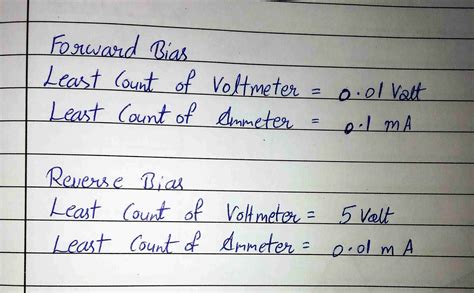 Forward Bias
Least Count of Voltmeter = 0.01 Volt
Least Count of Ammeter = 0.1 mA
Reverse Bias
Least Count of Voltmeter = 5 Volt
Least Count of Ammeter = 0.01 mA